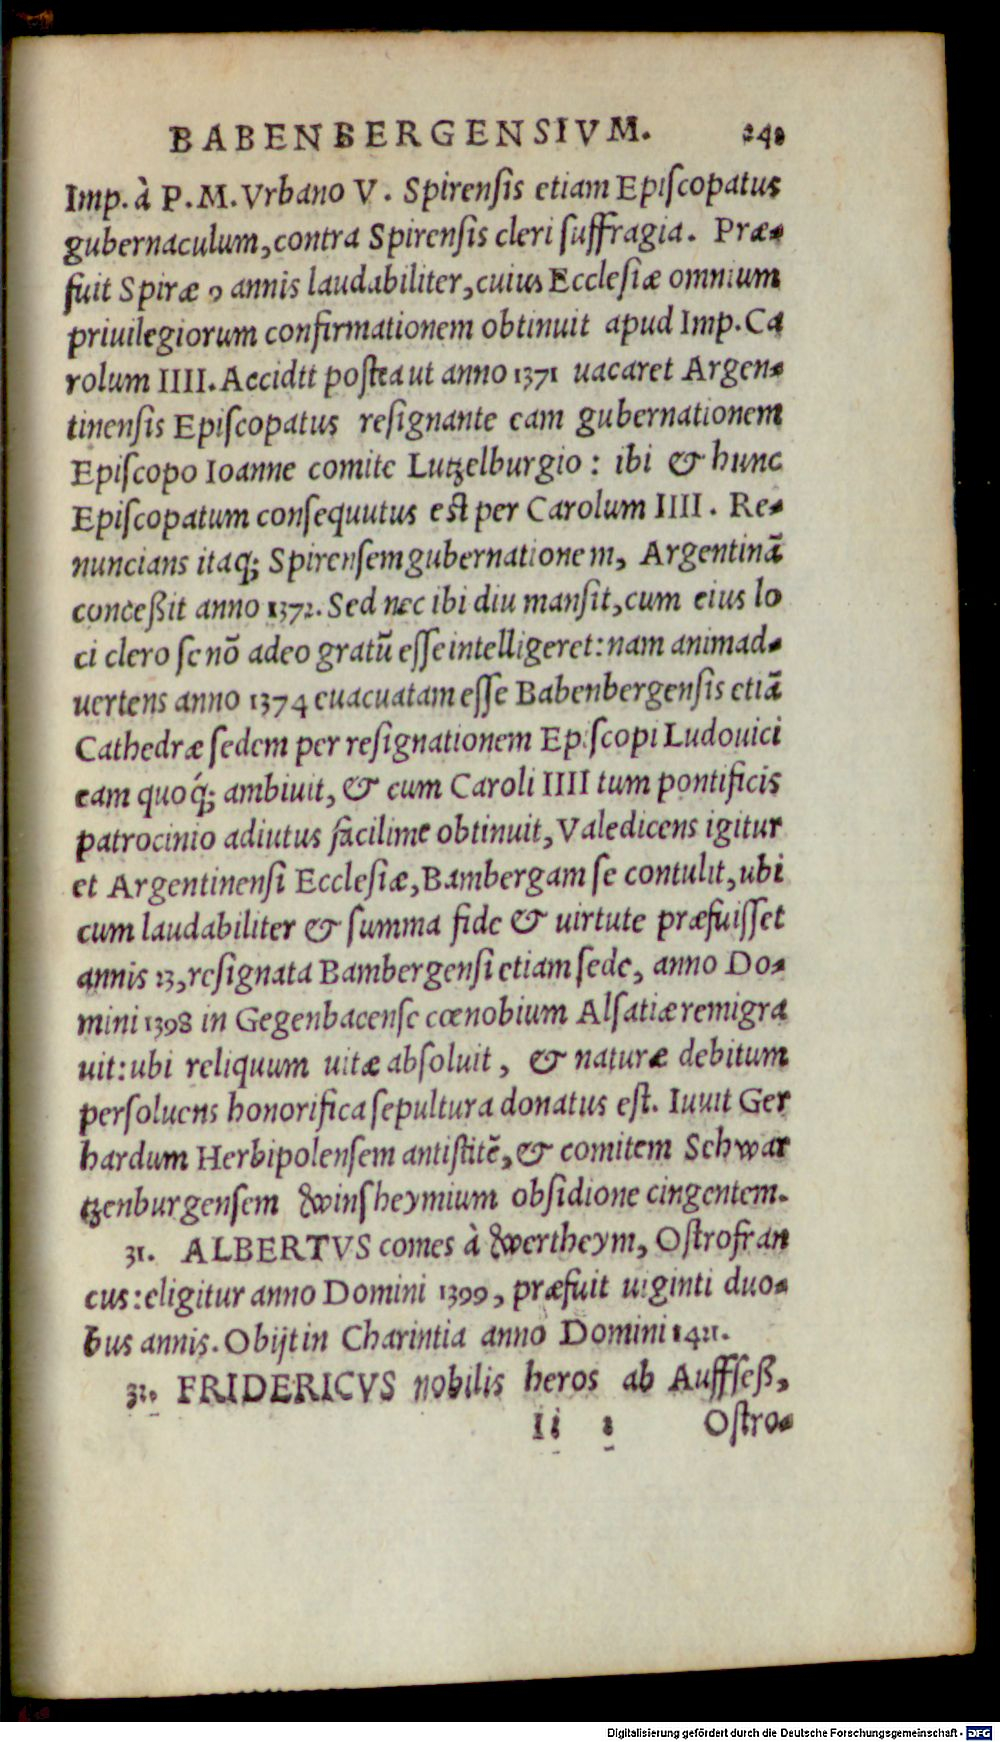 BABENBERGENSIVM. 248
Imp. à P. M. Vrbano V. Spirenſis etiam Epiſcopatus
gubernaculum, contra Spirenſis cleri ſuffragia. Præ-
fuit Spiræ 9 annis laudabiliter, cuius Eccleſiæ omnium
priuilegiorum confirmationem obtinuit apud Imp. Ca
rolum IIII. Accidit poſtea ut anno 1371 uacaret Argen-
tinenſis Epiſcopatus reſignante eam gubernationem
Epiſcopo Ioanne comite Lutzelburgio: ibi & hunc
Epiſcopatum conſequutus eſt per Carolum IIII. Re-
nuncians itaq; Spirenſem gubernationem, Argentinā
conceßit anno 1372. Sed nec ibi diu manſit, cum eius lo
ci clero ſe nō adeo gratū eſſe intelligeret: nam animad-
uertens anno 1374 euacuatam eſſe Babenbergenſis etiā
Cathedræ ſedem per reſignationem Epiſcopi Ludouici
eam quoq́; ambiuit, & cum Caroli IIII tum pontificis
patrocinio adiutus facilime obtinuit, Valedicens igitur
et Argentinenſi Eccleſiæ, Bambergam ſe contulit, ubi
cum laudabiliter & ſumma fide & uirtute præfuiſſet
annis 23, reſignata Bambergenſi etiam ſede, anno Do-
mini 1398 in Gegenbacenſe cœnobium Alſatiæ remigra
uit: ubi reliquum uitæ abſoluit, & naturæ debitum
perſoluens honorifica ſepultura donatus eſt. Iuuit Ger
hardum Herbipolenſem antiſtitē, & comitem Schwar
tzenburgenſem Winsheymium obſidione cingentem.
31. ALBERTVS comes à Wertheym, Oſtrofran
cus: eligitur anno Domini 1399, præfuit uiginti duo-
bus annis. Obijt in Charintia anno Domini 1421.
32. FRIDERICVS nobilis heros ab Auffſeß,
Ii 2 Oſtro-
Digitalisierung gefördert durch die Deutsche Forschungsgemeinschaft - DFG